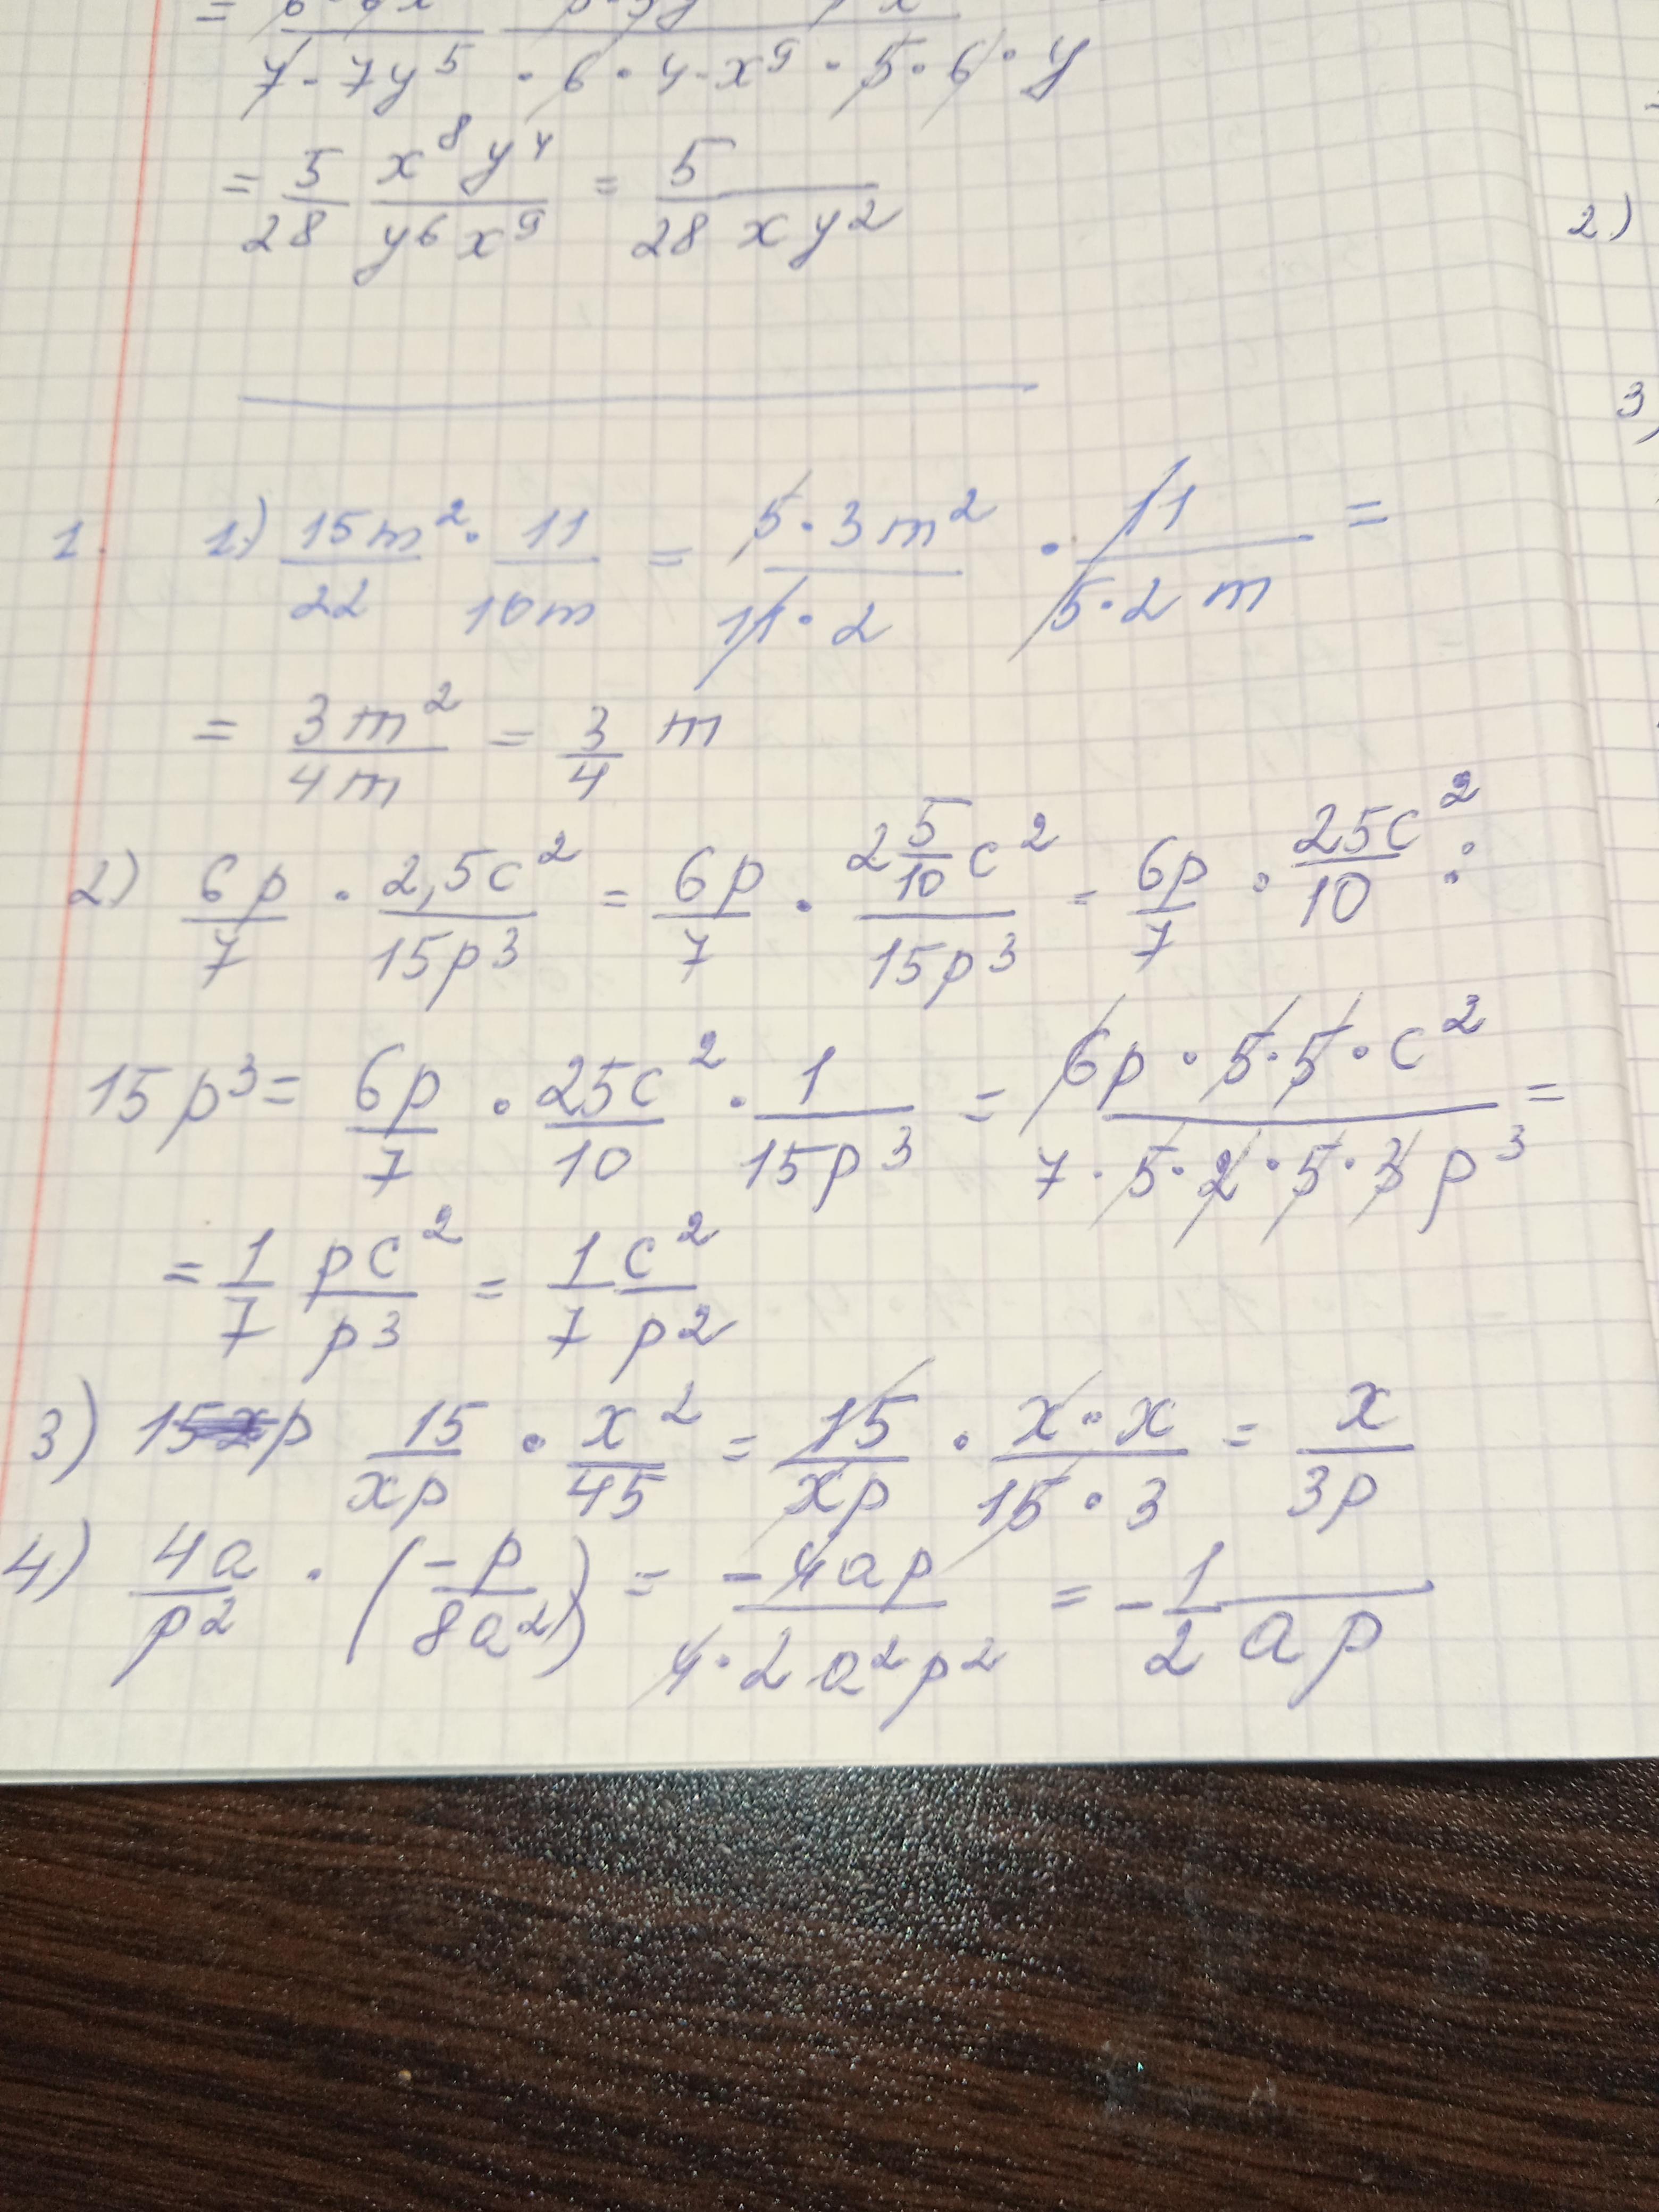 7·7y⁵ · 6·4·x⁹ · 5·6·y
= 5/28 x⁸y⁴/y⁶x⁹ = 5/28xy²
2)
3)
1. 1.) 15m²/22 · 11/10m = 5·3m²/11·2 · 11/5·2m =
= 3m²/4m = 3/4 m
2) 6p/7 · 2,5c²/15p³ = 6p/7 · 2 5/10 c²/15p³ = 6p/7 · 25c²/10 :
15p³ = 6p/7 · 25c²/10 · 1/15p³ = 6p·5·5·c²/7·5·2·5·3p³ =
= 1/7 pc²/p³ = 1/7 c²/p²
3) 15/xp · x²/45 = 15/xp · x·x/15·3 = x/3p
4) 4a/p² · (-p/8a²) = -4ap/4·2a²p² = -1/2ap